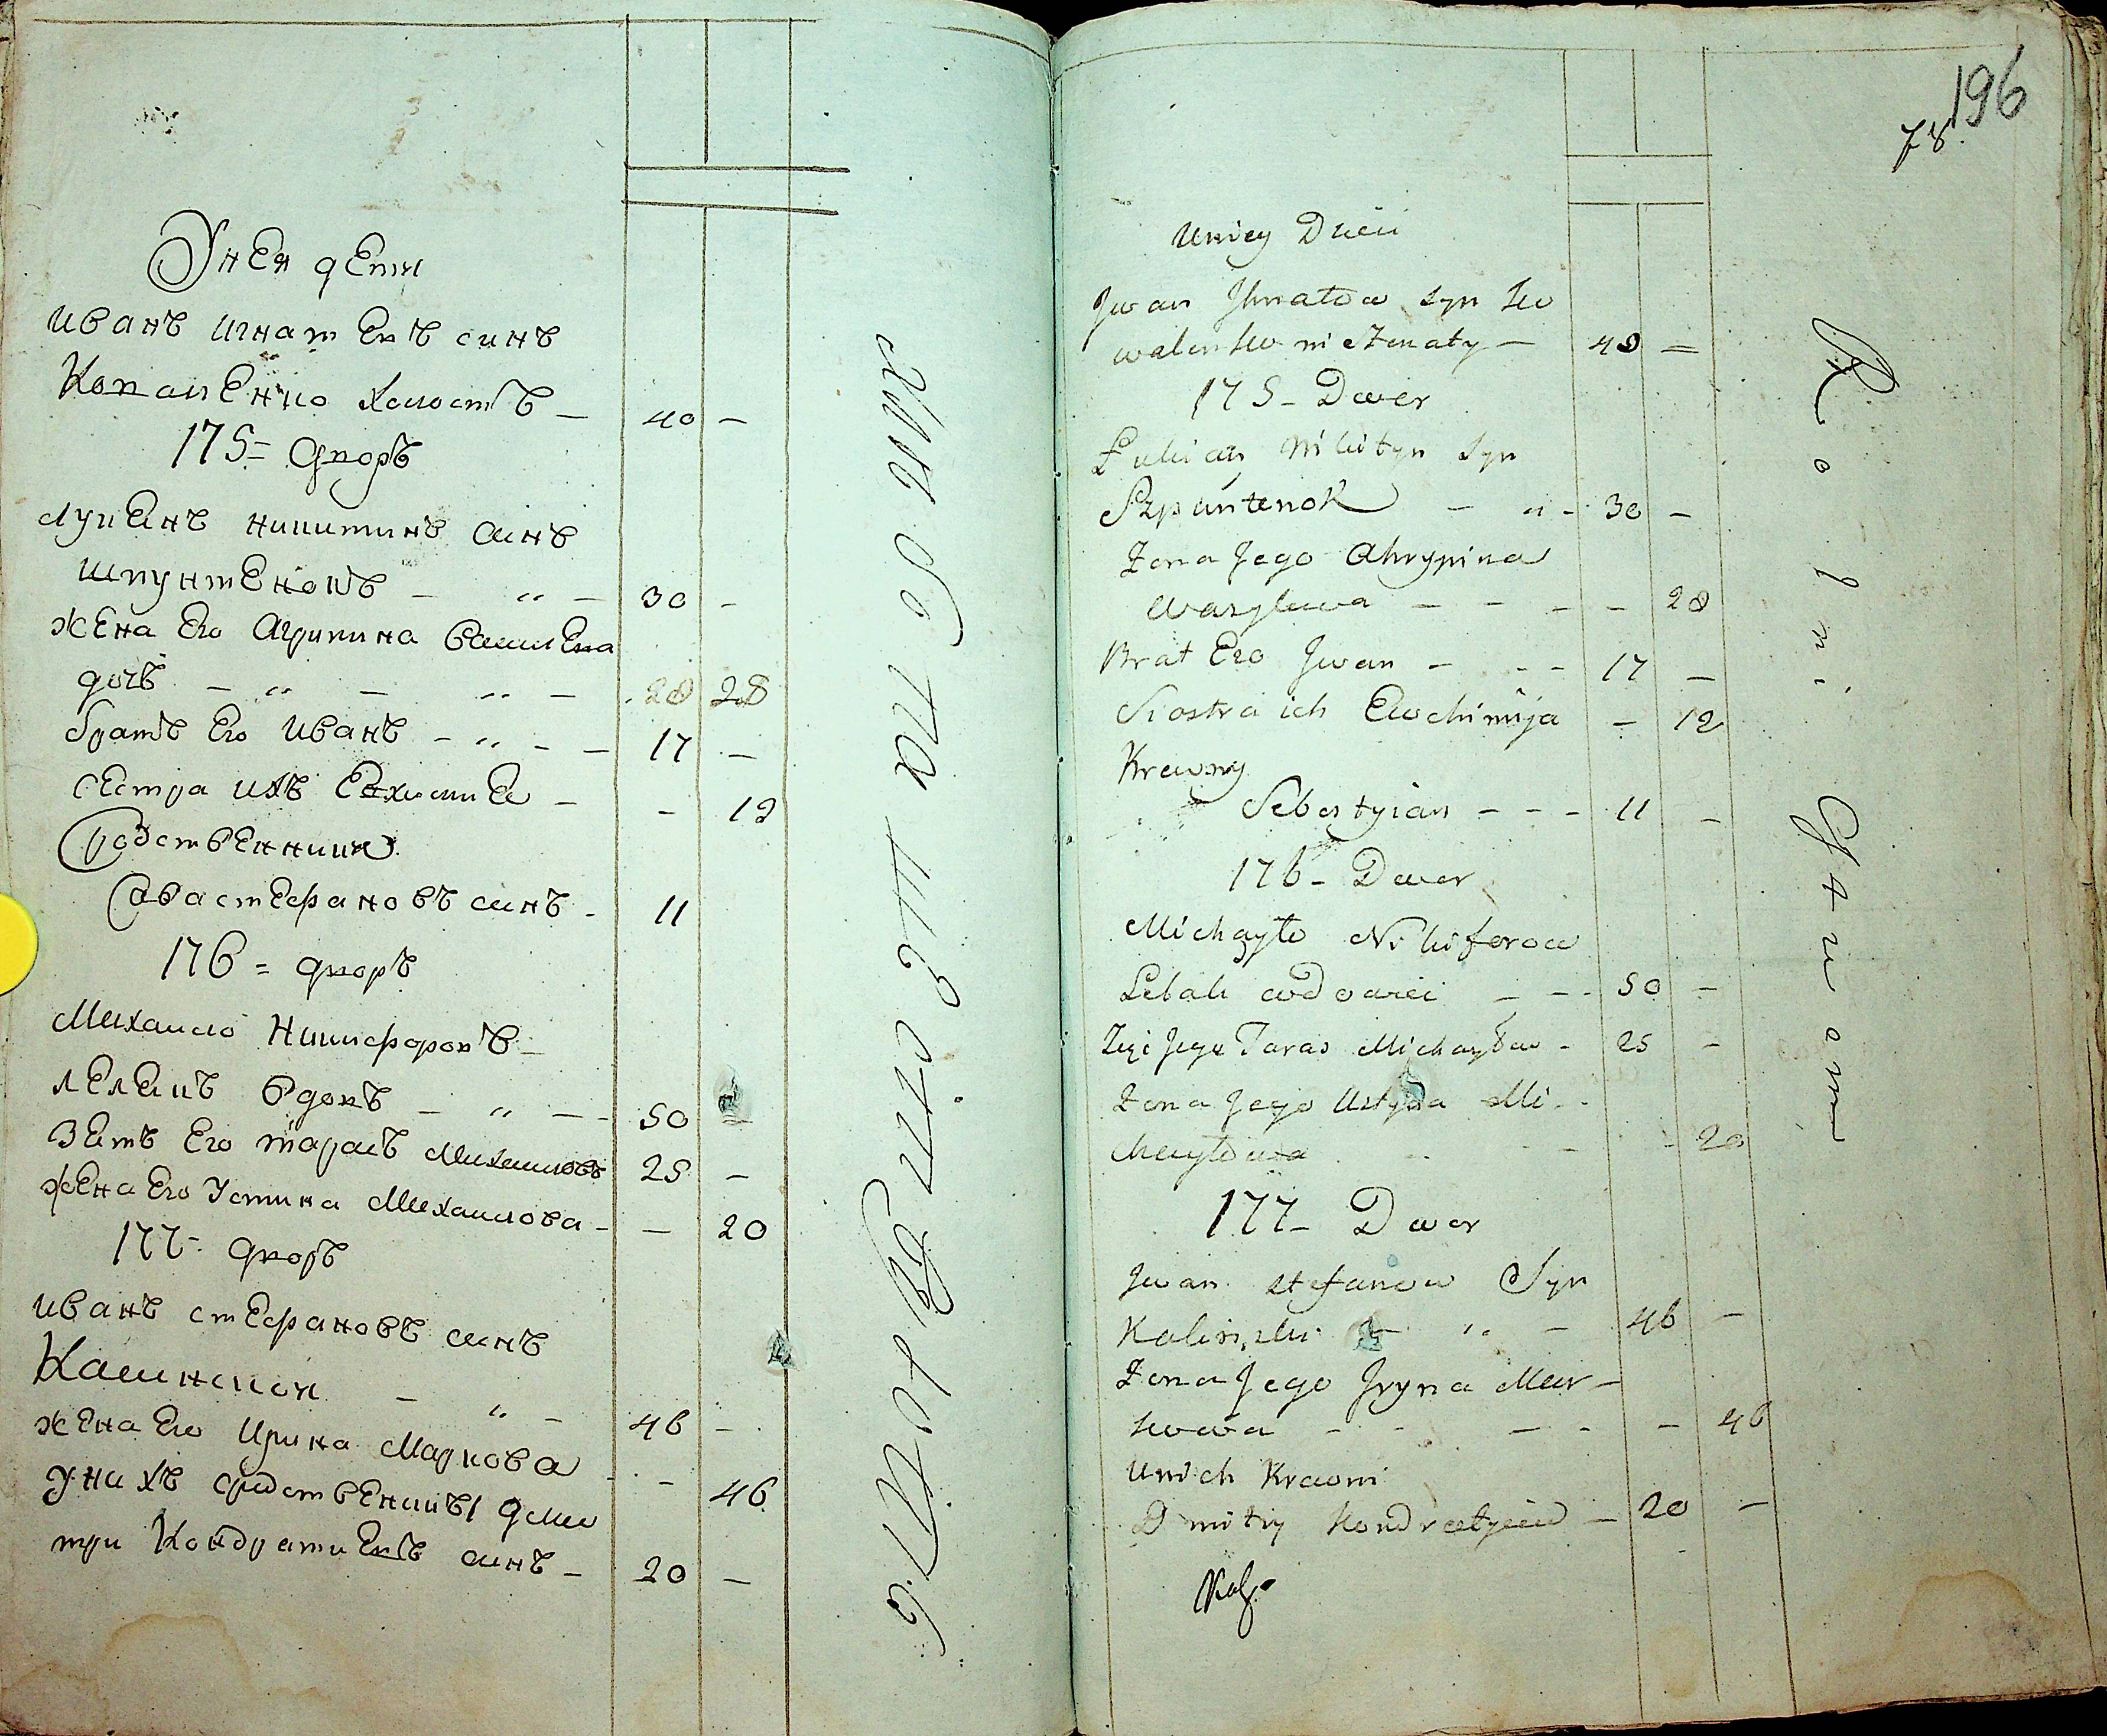 У нея дети
Иванъ Игнатевъ синъ
Коваленко холостъ — 40 —
175 = дворъ
Лукеянъ Никитинъ синъ
Шпунтенокъ — „ — 30 —
жена Его Агрипина Василева
дочь — „ — „ — 28 28
братъ Его Иванъ — „ — — 17 —
сестра ихъ Евхимие — — 12
Родственники
Сава стефановъ синъ — 11
176 = дворъ
Михаило Никифоровъ —
вдовъ — „ — 50 =
Зеть Его тарасъ Михаиловъ 25 —
жена Его Устина Михаилова — — 20
177 = дворъ
Иванъ стефановъ синъ
Калинской — „ — 46 —
жена Его Ирина Маркова — 46
у нихъ сродственникъ Дми
три Кондратиевъ синъ — 20 —
196
78.
Uniey Dzieci
Jwan Jhnatow syn Ko
walenko nieżenaty — 40 =
175 — Dwor
Lukian Nikityn Syn
Szpuntenok — „ - 30 —
Żona Jego Ahrypina
Wasylewa — - - — 28
Brat Eго Jwan — - - 17 —
Siostra ich Ewchimija — 12
Krewny
Sebestyian - - - 11 —
176 — Dwor
Michayło Nikiforow
wdowiec — - - 50 —
Zięć Jego Taras Michayłow - 25 —
Żona Jego Ustyna Mi-
chayłowa - - - - 20
177 — Dwor
Jwan stefanow Syn
Kalinski — „ — 46 —
Żona Jego Jryna Mar-
kowa - - — - — 46
Unich Krewni
Dmitry Kondratyiew — 20 —